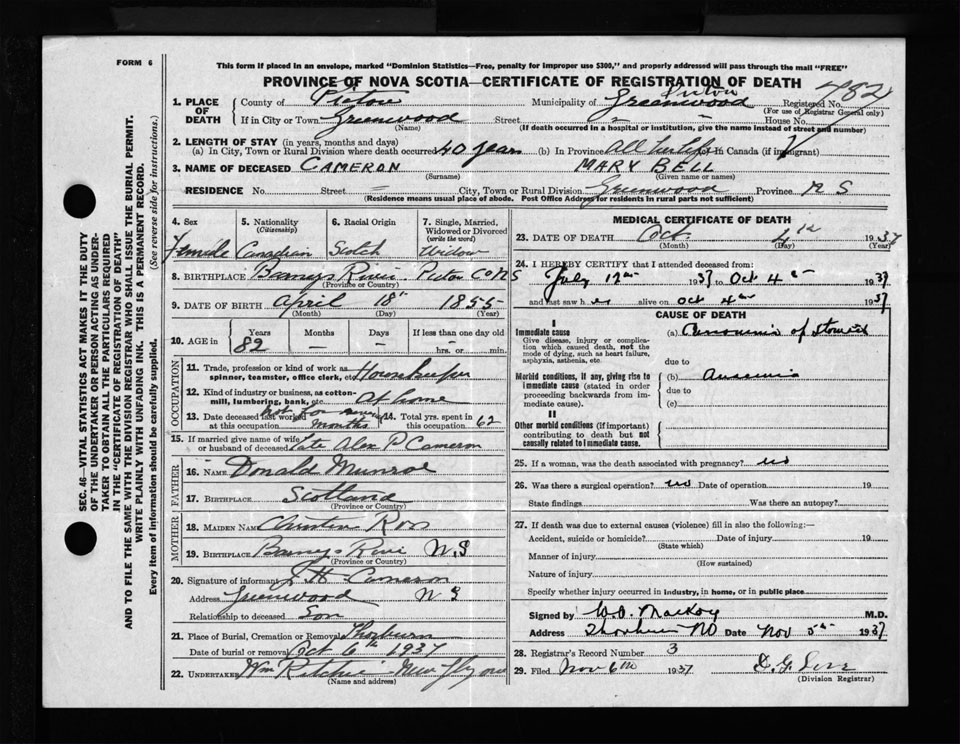 FORM 6
This form if placed in an envelope, marked "Dominion Statistics—Free, penalty for improper use $300," and properly addressed will pass through the mail "FREE"
PROVINCE OF NOVA SCOTIA—CERTIFICATE OF REGISTRATION OF DEATH
482
1. PLACE OF DEATH County of Pictou Municipality of Pictou Registered No.
(For use of Registrar General only)
If in City or Town Greenwood Greenwood Street - House No. -
(Name) (If death occurred in a hospital or institution, give the name instead of street and number)
2. LENGTH OF STAY (in years, months and days)
(a) In City, Town or Rural Division where death occurred 40 years (b) In Province All her life In Canada (if immigrant)
3. NAME OF DECEASED CAMERON MARY BELL
(Surname) (Given name or names)
RESIDENCE No. Street City, Town or Rural Division Greenwood Province N S
(Residence means usual place of abode. Post Office Address for residents in rural parts not sufficient)
4. Sex 5. Nationality (Citizenship) 6. Racial Origin 7. Single, Married, Widowed or Divorced (write the word)
Female Canadian Scotch Widow
8. BIRTHPLACE Barneys River Pictou Co N S
(Province or Country)
9. DATE OF BIRTH April 18th 1855
(Month) (Day) (Year)
10. AGE in Years Months Days If less than one day old
82 — — hrs. or min.
OCCUPATION
11. Trade, profession or kind of work as spinner, teamster, office clerk, etc. Housekeeper
12. Kind of industry or business, as cotton-mill, lumbering, bank, etc. At home
13. Date deceased last worked at this occupation not for seven months 14. Total yrs. spent in 62
15. If married give name of wife or husband of deceased Late Alex P Cameron
FATHER
16. NAME Donald Munroe
17. BIRTHPLACE Scotland
(Province or Country)
MOTHER
18. MAIDEN NAME Christina Ross
19. BIRTHPLACE Barneys River N.S
(Province or Country)
20. Signature of informant J H Cameron
Address Greenwood N S
Relationship to deceased Son
21. Place of Burial, Cremation or Removal Thorburn
Date of burial or removal Oct 6th 1937
22. UNDERTAKER Wm Ritchie New Glasgow
(Name and address)
MEDICAL CERTIFICATE OF DEATH
23. DATE OF DEATH Oct. 4th 1937
(Month) (Year)
24. I HEREBY CERTIFY that I attended deceased from:
July 12th 1937 to Oct 4th 1937
and last saw her alive on Oct 4th 1937
CAUSE OF DEATH
I
Immediate cause (a) Carcinoma of stomach
Give disease, injury or complication which caused death, not the mode of dying, such as heart failure, asphyxia, asthenia, etc.
due to
Morbid conditions, if any, giving rise to immediate cause (stated in order proceeding backwards from immediate cause). (b) Anaemia
due to
(c)
II
Other morbid conditions (if important) contributing to death but not causally related to immediate cause.
25. If a woman, was the death associated with pregnancy? no
26. Was there a surgical operation? no Date of operation 19
State findings Was there an autopsy?
27. If death was due to external causes (violence) fill in also the following:
Accident, suicide or homicide? Date of injury 19
(State which)
Manner of injury
(How sustained)
Nature of injury
Specify whether injury occurred in industry, in home, or in public place
Signed by W.A. MacKay M.D.
Address Thorburn NS Date Nov 5th 1937
28. Registrar's Record Number 3
29. Filed Nov 6th 1937
(Division Registrar)
SEC. 46—VITAL STATISTICS ACT MAKES IT THE DUTY
OF THE UNDERTAKER OR PERSON ACTING AS UNDER-
TAKER TO OBTAIN ALL THE PARTICULARS REQUIRED
IN THE "CERTIFICATE OF REGISTRATION OF DEATH"
AND TO FILE THE SAME WITH THE DIVISION REGISTRAR WHO SHALL ISSUE THE BURIAL PERMIT.
WRITE PLAINLY WITH UNFADING INK. THIS IS A PERMANENT RECORD.
Every item of information should be carefully supplied. (See reverse side for instructions.)